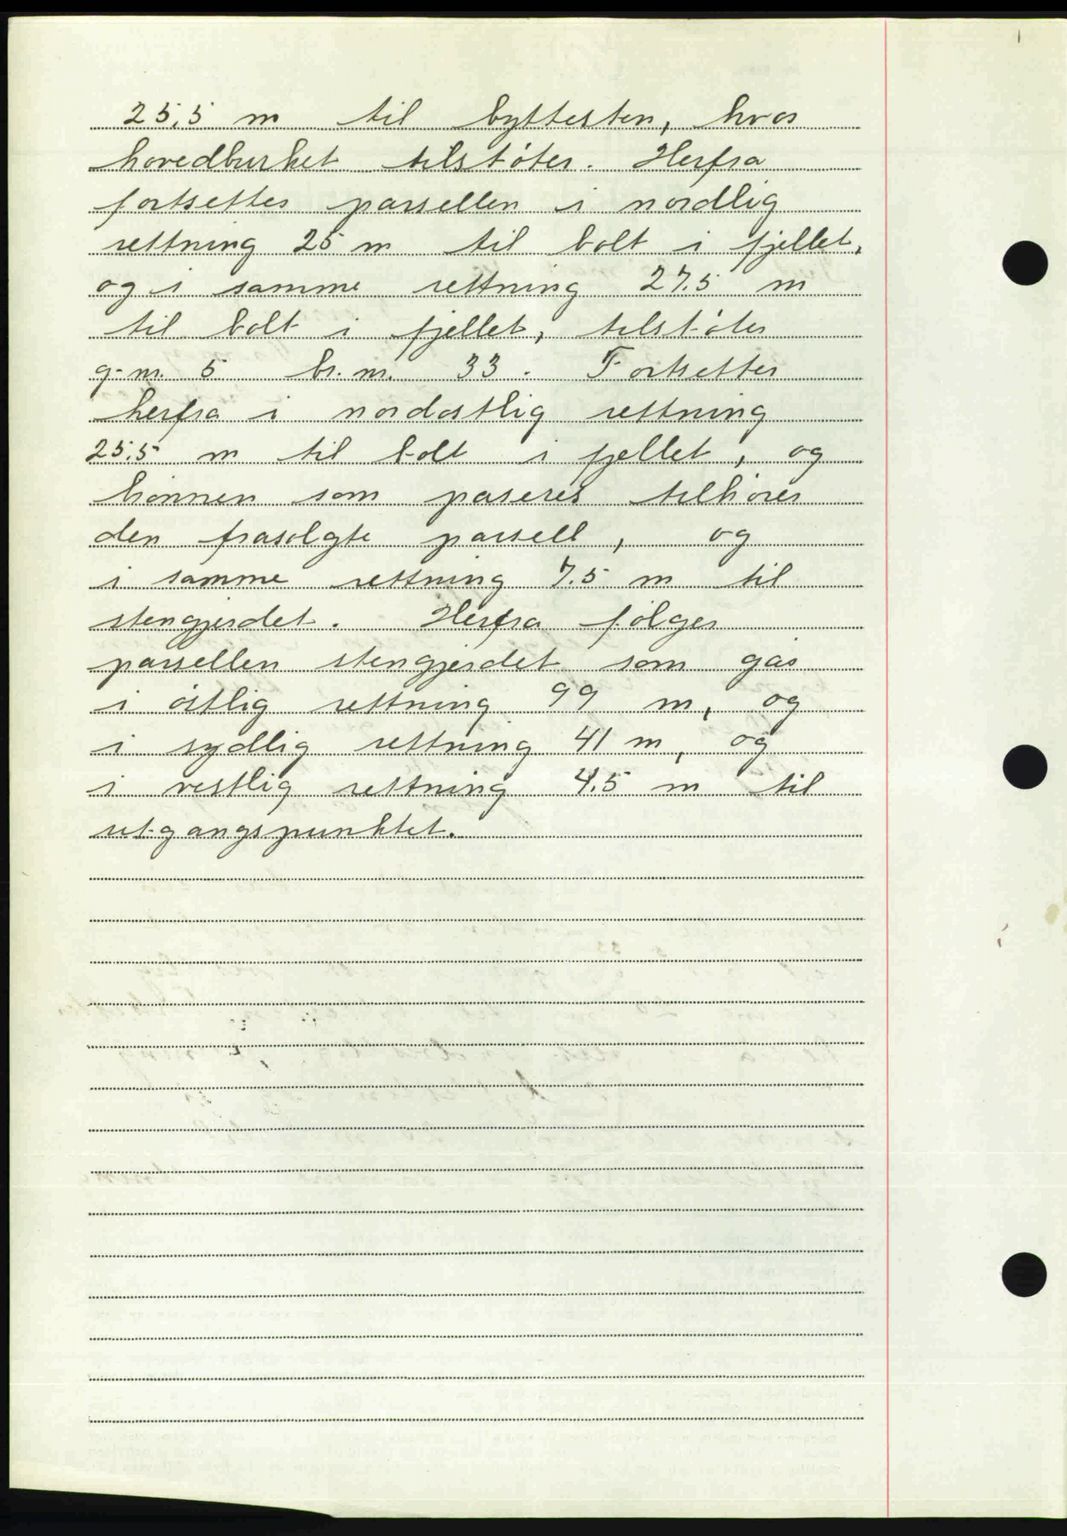 25,5 m til byttesten, hvor
hovedbruket tilstöter. Herfra
fortsettes parsellen i nordlig
rettning 25 m til bolt i fjellet,
og i samme rettning 27.5 m
til bolt i fjellet, tilstöter
g.nr. 5 br.nr. 33. Fortsetter
herfra i nordostlig rettning
25.5 m til bolt i fjellet, og
som paseres tilhörer
den frasolgte parsell, og
i samme rettning 7.5 m til
stengjerdet. Herfra fölger
parsellen stengjerdet som går
i östlig rettning 99 m, og
i sydlig rettning 41 m, og
i vestlig rettning 4.5 m til
utgangspunktet.